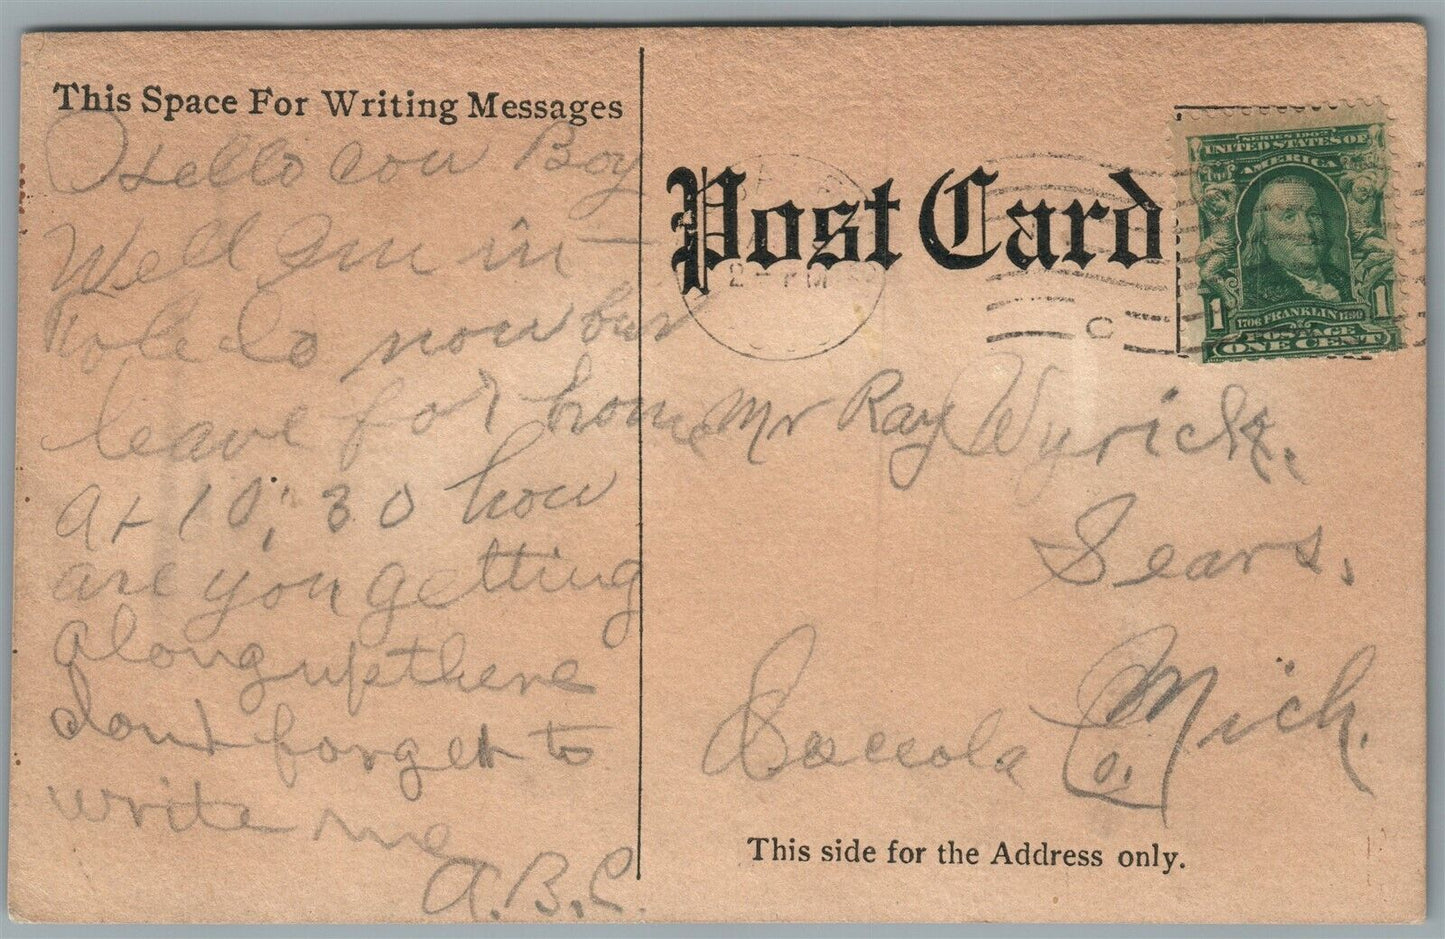 This Space For Writing Messages
Hello cow Boy
Well I m in
Toledo now but
leave for home
at 10;30 how
are you getting
along up there
dont forget to
write me
A.B.C.
Post Card
SERIES 1902
UNITED STATES OF
AMERICA
1 1
1706 FRANKLIN 1790
POSTAGE
ONE CENT
C
Mr Ray Wyrick.
Sears.
Osceola Co. Mich.
This side for the Address only.